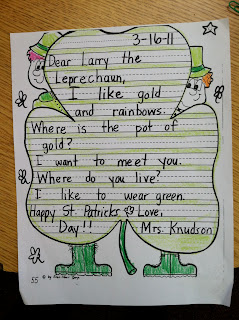 3-16-11
Dear Larry the
Leprechaun,
I like gold
and rainbows.
Where is the pot of
gold?
I want to meet you.
Where do you live?
I like to wear green.
Happy St. Patricks Love,
Day!! Mrs. Knudson
55